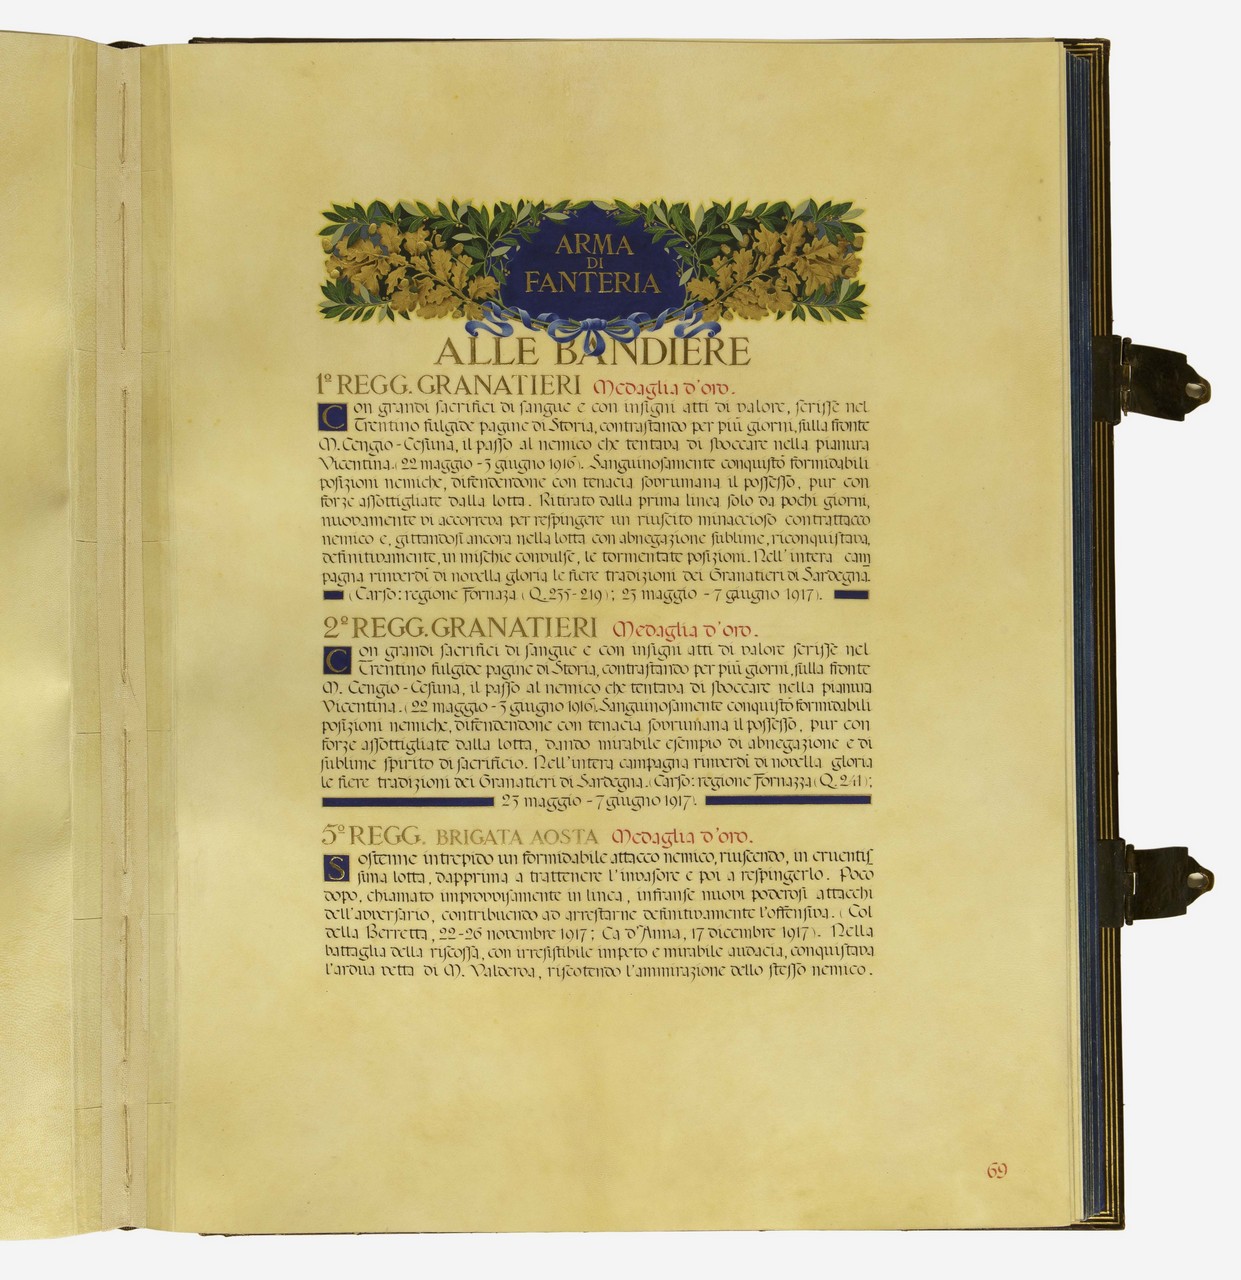 ARMA
DI
FANTERIA
ALLE BANDIERE
1º REGG. GRANATIERI Medaglia d'oro.
Con grandi sacrifici di sangue e con insigni atti di valore, scrisse nel
Trentino fulgide pagine di Storia, contrastando per più giorni, sulla fronte
M. Cengio - Cesuna, il passo al nemico che tentava di sboccare nella pianura
Vicentina. (22 maggio - 3 giugno 1916). Sanguinosamente conquistò formidabili
posizioni nemiche, difendendone con tenacia sovrumana il possesso, pur con
forze assottigliate dalla lotta. Ritirato dalla prima linea solo da pochi giorni,
nuovamente vi accorreva per respingere un riuscito minaccioso contrattacco
nemico e, gittandosi ancora nella lotta con abnegazione sublime, riconquistava,
definitivamente, in mischie convulse, le tormentate posizioni. Nell'intera cam
pagna rinverdì di novella gloria le fiere tradizioni dei Granatieri di Sardegna.
(Carso: regione Fornaza (Q. 235 - 219); 23 maggio - 7 giugno 1917).
2º REGG. GRANATIERI Medaglia d'oro.
Con grandi sacrifici di sangue e con insigni atti di valore scrisse nel
Trentino fulgide pagine di Storia, contrastando per più giorni, sulla fronte
M. Cengio - Cesuna, il passo al nemico che tentava di sboccare nella pianura
Vicentina. (22 maggio - 3 giugno 1916). Sanguinosamente conquistò formidabili
posizioni nemiche, difendendone con tenacia sovrumana il possesso, pur con
forze assottigliate dalla lotta, dando mirabile esempio di abnegazione e di
sublime spirito di sacrificio. Nell'intera campagna rinverdì di novella gloria
le fiere tradizioni dei Granatieri di Sardegna. (Carso: regione Fornazza (Q. 241);
23 maggio - 7 giugno 1917).
5º REGG. BRIGATA AOSTA Medaglia d'oro.
Sostenne intrepido un formidabile attacco nemico, riuscendo, in cruentis
sima lotta, dapprima a trattenere l'invasore e poi a respingerlo. Poco
dopo, chiamato improvvisamente in linea, infranse nuovi poderosi attacchi
dell'avversario, contribuendo ad arrestarne definitivamente l'offensiva. (Col
della Berretta, 22-26 novembre 1917; Ca d'Anna, 17 dicembre 1917). Nella
battaglia della riscossa, con irresistibile impeto e mirabile audacia, conquistava
l'ardua vetta di M. Valderoa, riscotendo l'ammirazione dello stesso nemico.
69